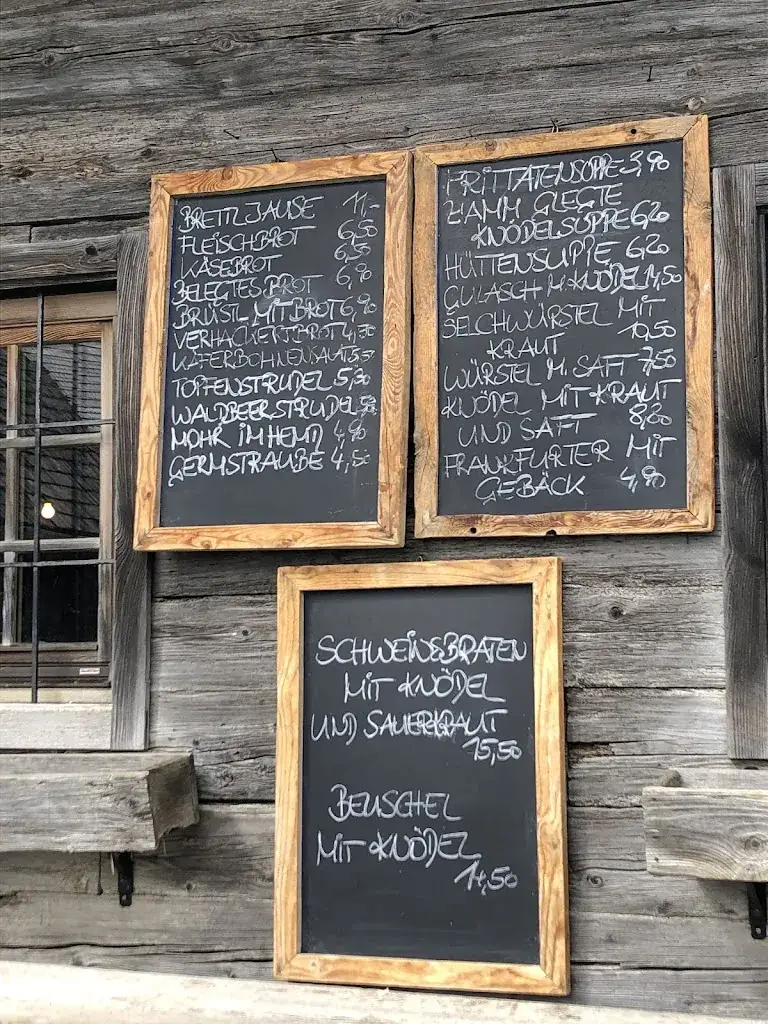 BRETTLJAUSE 11,-
FLEISCHBROT 6,50
KÄSEBROT 6,50
BELEGTES BROT 6,90
BRÜSTL MIT BROT 6,90
VERHACKERTBROT 4,70
KÄFERBOHNENSALAT
TOPFENSTRUDEL 5,30
WALDBEERSTRUDEL
MOHR IM HEMD 4,90
GERMSTRAUBE 4,50
FRITTATENSUPPE 3,90
KNÖDELSUPPE 6,20
HÜTTENSUPPE 6,20
GULASCH M. KNÖDEL
SELCHWÜRSTEL MIT
KRAUT 10,50
WÜRSTEL M. SAFT 7,50
KNÖDEL MIT KRAUT
UND SAFT 8,20
FRANKFURTER MIT
GEBÄCK 4,90
SCHWEINSBRATEN
MIT KNÖDEL
UND SAUERKRAUT
15,50
BEUSCHEL
MIT KNÖDEL
14,50